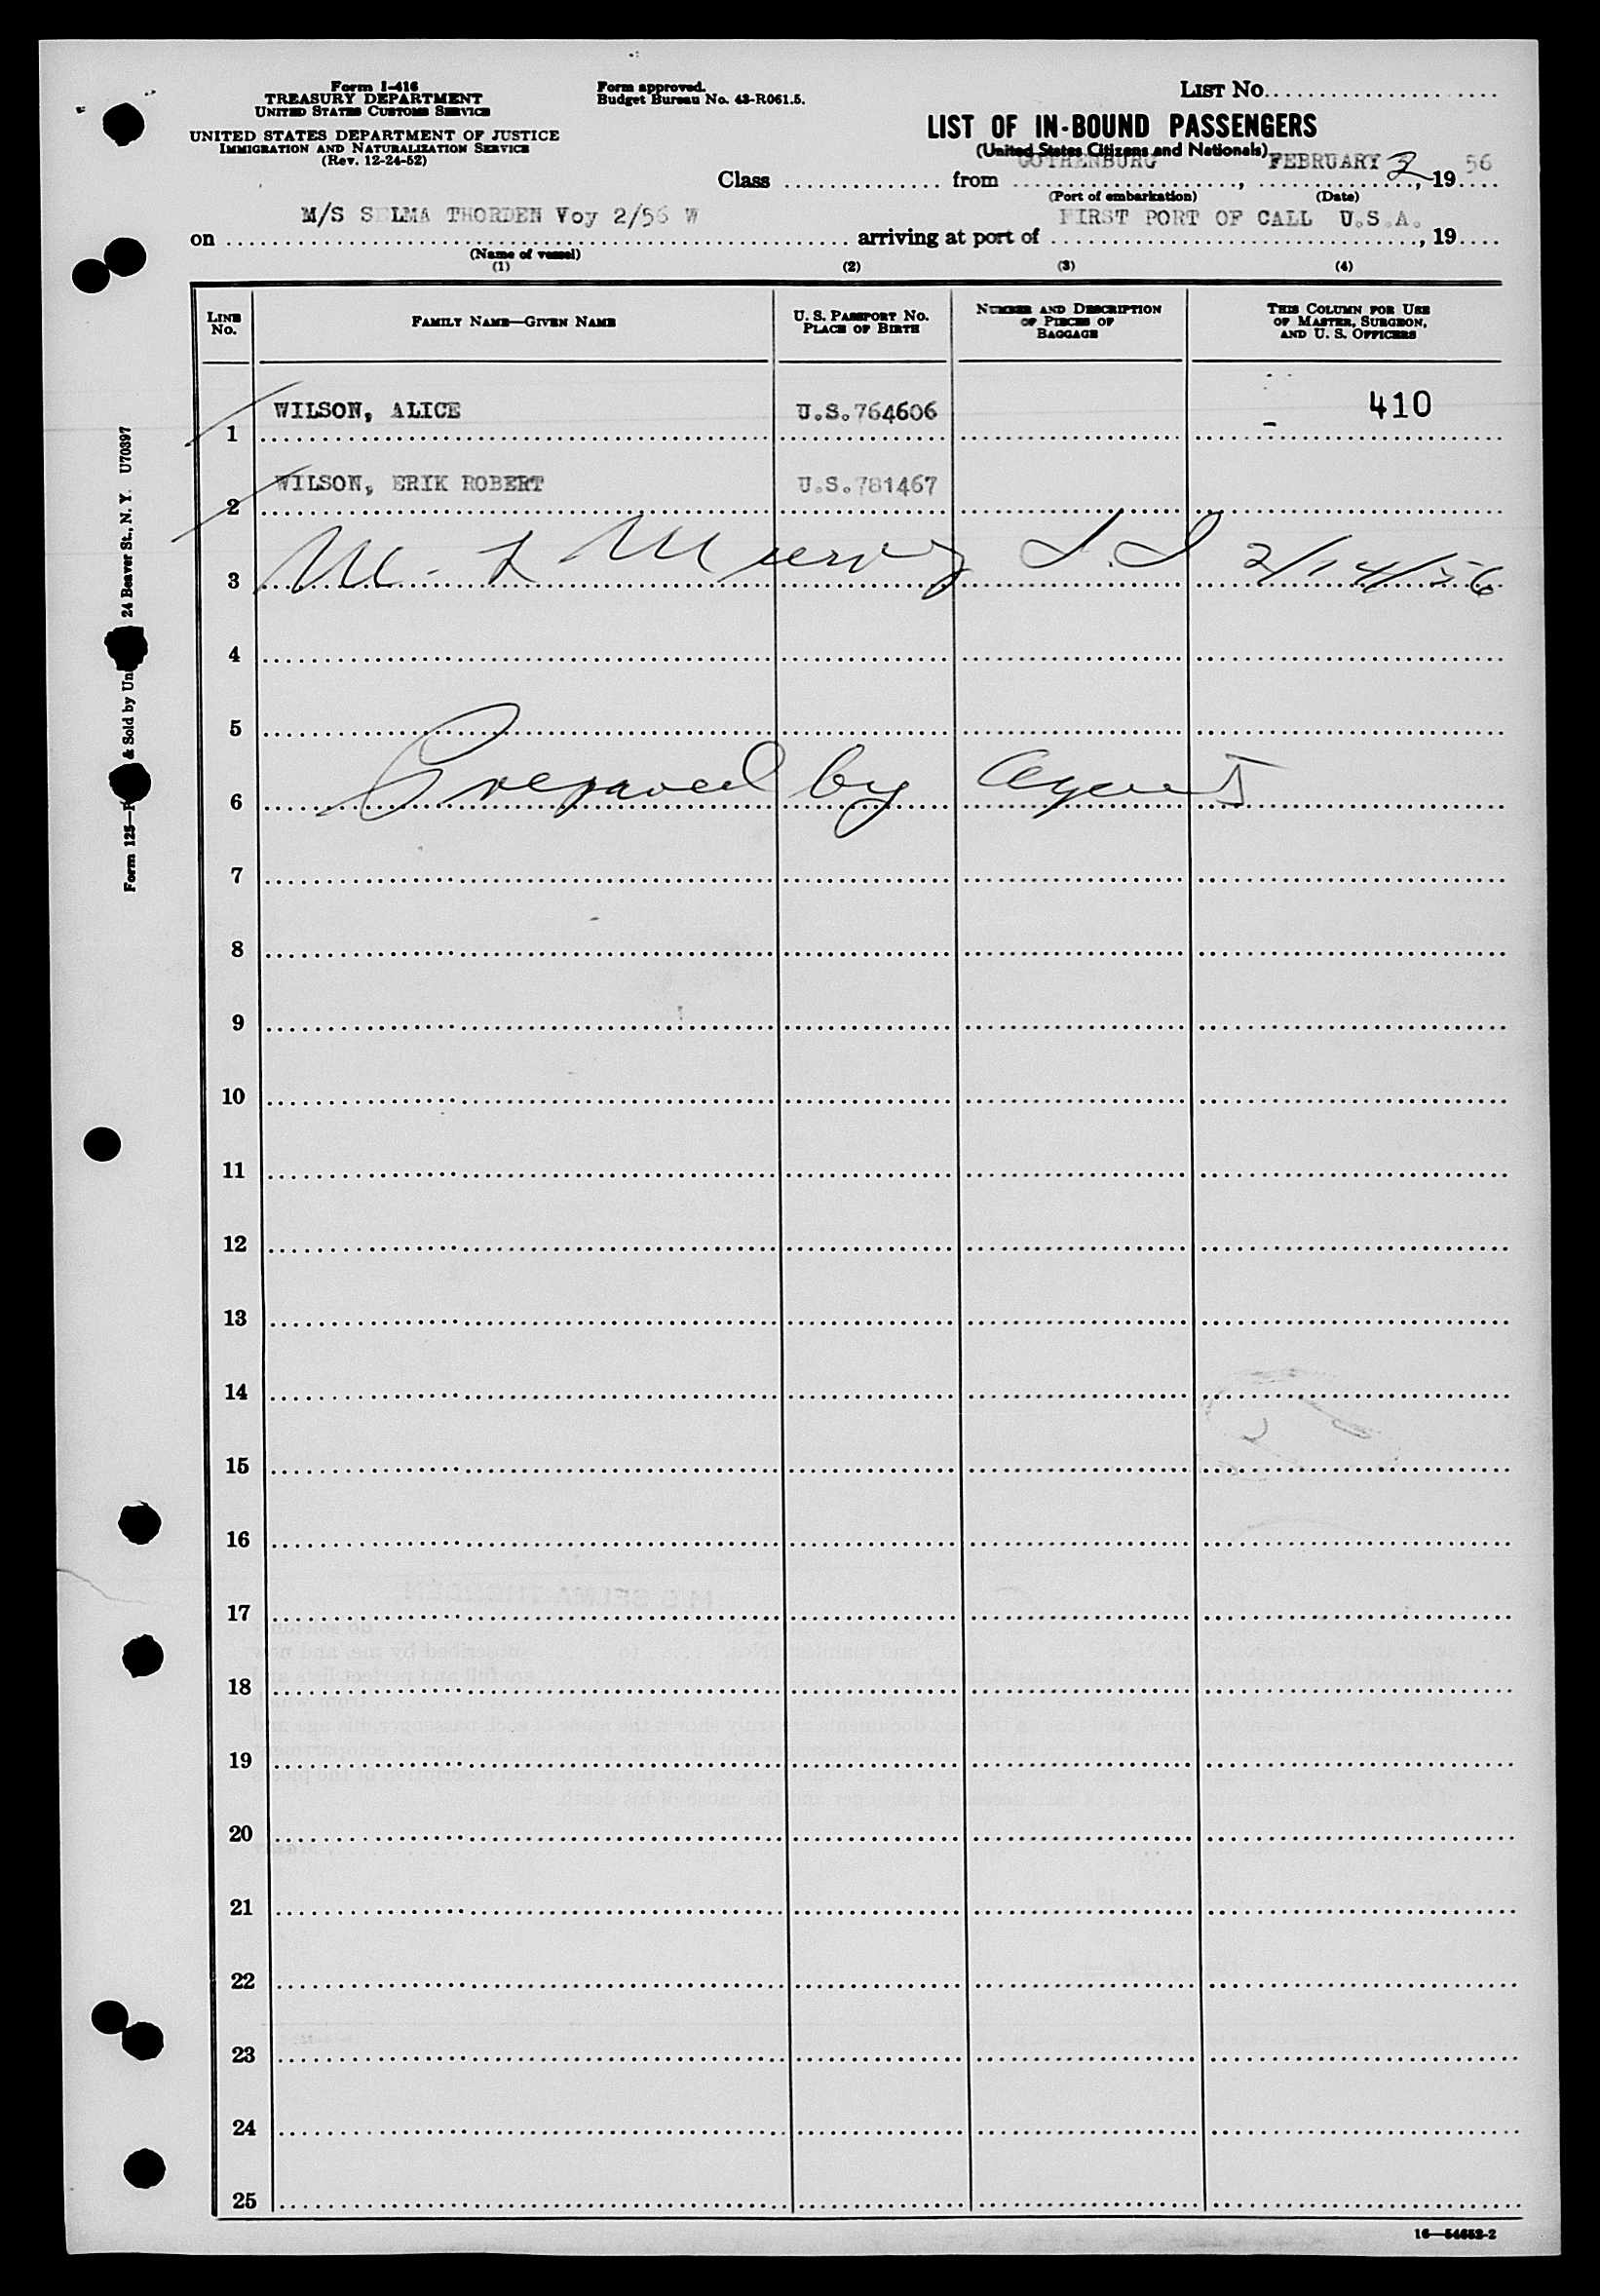 Form I-416
TREASURY DEPARTMENT
UNITED STATES CUSTOMS SERVICE
UNITED STATES DEPARTMENT OF JUSTICE
IMMIGRATION AND NATURALIZATION SERVICE
(Rev. 12-24-52)
Form approved.
Budget Bureau No. 43-R061.5.
LIST No.
LIST OF IN-BOUND PASSENGERS
(United States Citizens and Nationals)
Class from GOTHENBURG, FEBRUARY 2, 1956
(Port of embarkation) (Date)
on M/S SELMA THORDEN Voy 2/56 W arriving at port of FIRST PORT OF CALL U.S.A., 19
(Name of vessel)
(1) (2) (3) (4)
LINE No. FAMILY NAME—GIVEN NAME U. S. PASSPORT NO. PLACE OF BIRTH NUMBER AND DESCRIPTION OF PIECES OF BAGGAGE THIS COLUMN FOR USE OF MASTER, SURGEON, AND U. S. OFFICERS
1 WILSON, ALICE U.S.764606 410
2 WILSON, ERIK ROBERT U.S.781467
3 M. 2/14/56
4
5
6 Prepared by Agent
7
8
9
10
11
12
13
14
15
16
17
18
19
20
21
22
23
24
25
16—54652-2
Form 125— & Sold by 24 Beaver St., N. Y. U70397